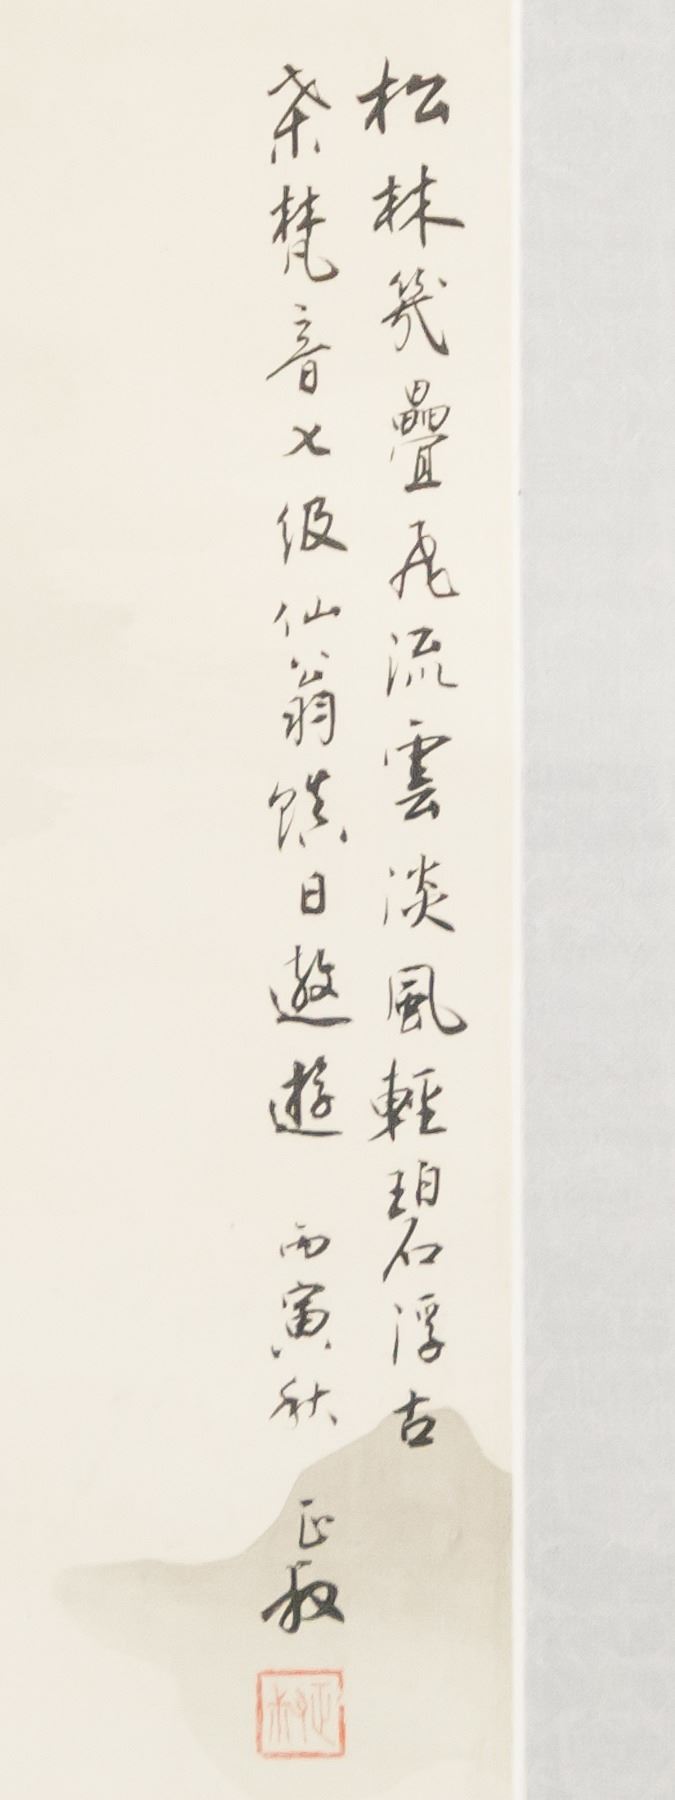 松林幾疊飛流雲淡風輕碧浮古
桀梵音七级仙翁鎮日遨遊 丙寅秋 正叔
正叔